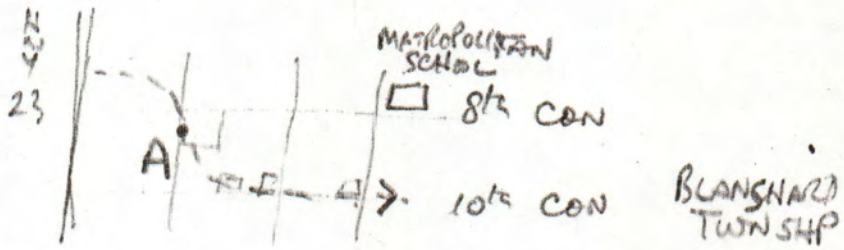 HWY
23
MATROPOLITAN
SCHOOL
8th CON
A
10th CON
BLANSHARD
TWNSHP